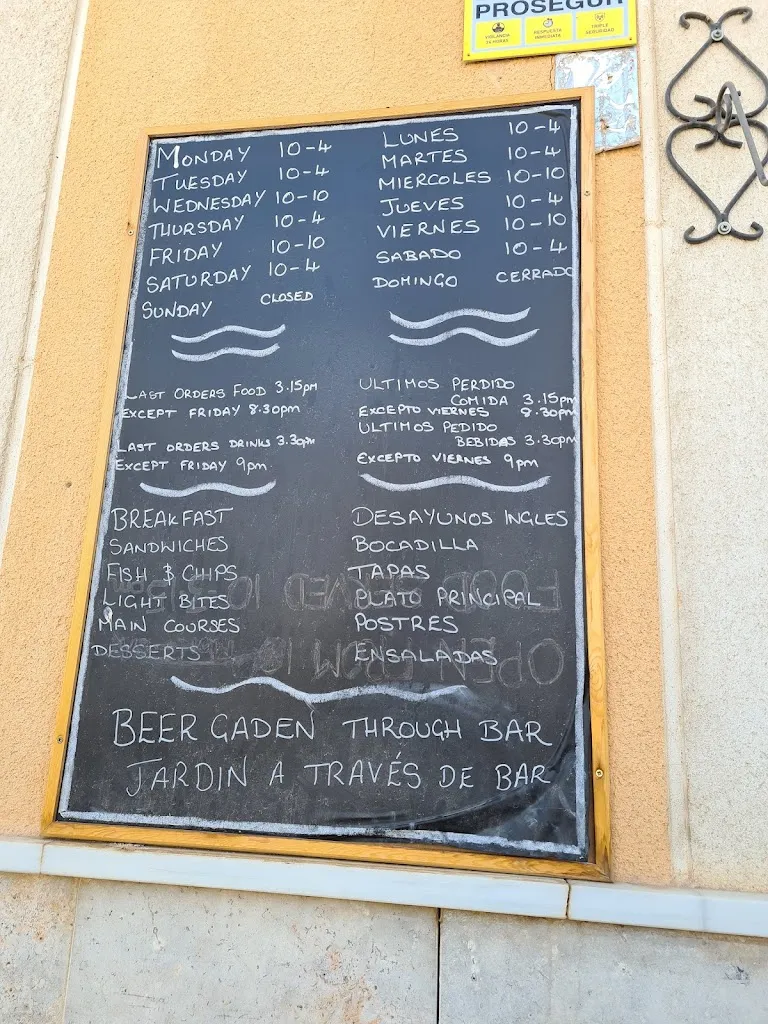 PROSEGUR
VIGILANCIA 24 HORAS
RESPUESTA INMEDIATA
TRIPLE SEGURIDAD
MONDAY 10-4
TUESDAY 10-4
WEDNESDAY 10-10
THURSDAY 10-4
FRIDAY 10-10
SATURDAY 10-4
SUNDAY CLOSED
LUNES 10-4
MARTES 10-4
MIERCOLES 10-10
JUEVES 10-4
VIERNES 10-10
SABADO 10-4
DOMINGO CERRADO
LAST ORDERS FOOD 3.15pm
EXCEPT FRIDAY 8.30pm
LAST ORDERS DRINKS 3.30pm
EXCEPT FRIDAY 9pm
ULTIMOS PERDIDO
COMIDA 3.15pm
EXCEPTO VIERNES 8.30pm
ULTIMOS PEDIDO
BEBIDAS 3.30pm
EXCEPTO VIERNES 9pm
BREAKFAST
SANDWICHES
FISH & CHIPS
LIGHT BITES
MAIN COURSES
DESSERTS
DESAYUNOS INGLES
BOCADILLA
TAPAS
PLATO PRINCIPAL
POSTRES
ENSALADAS
BEER GADEN THROUGH BAR
JARDIN A TRAVÉS DE BAR